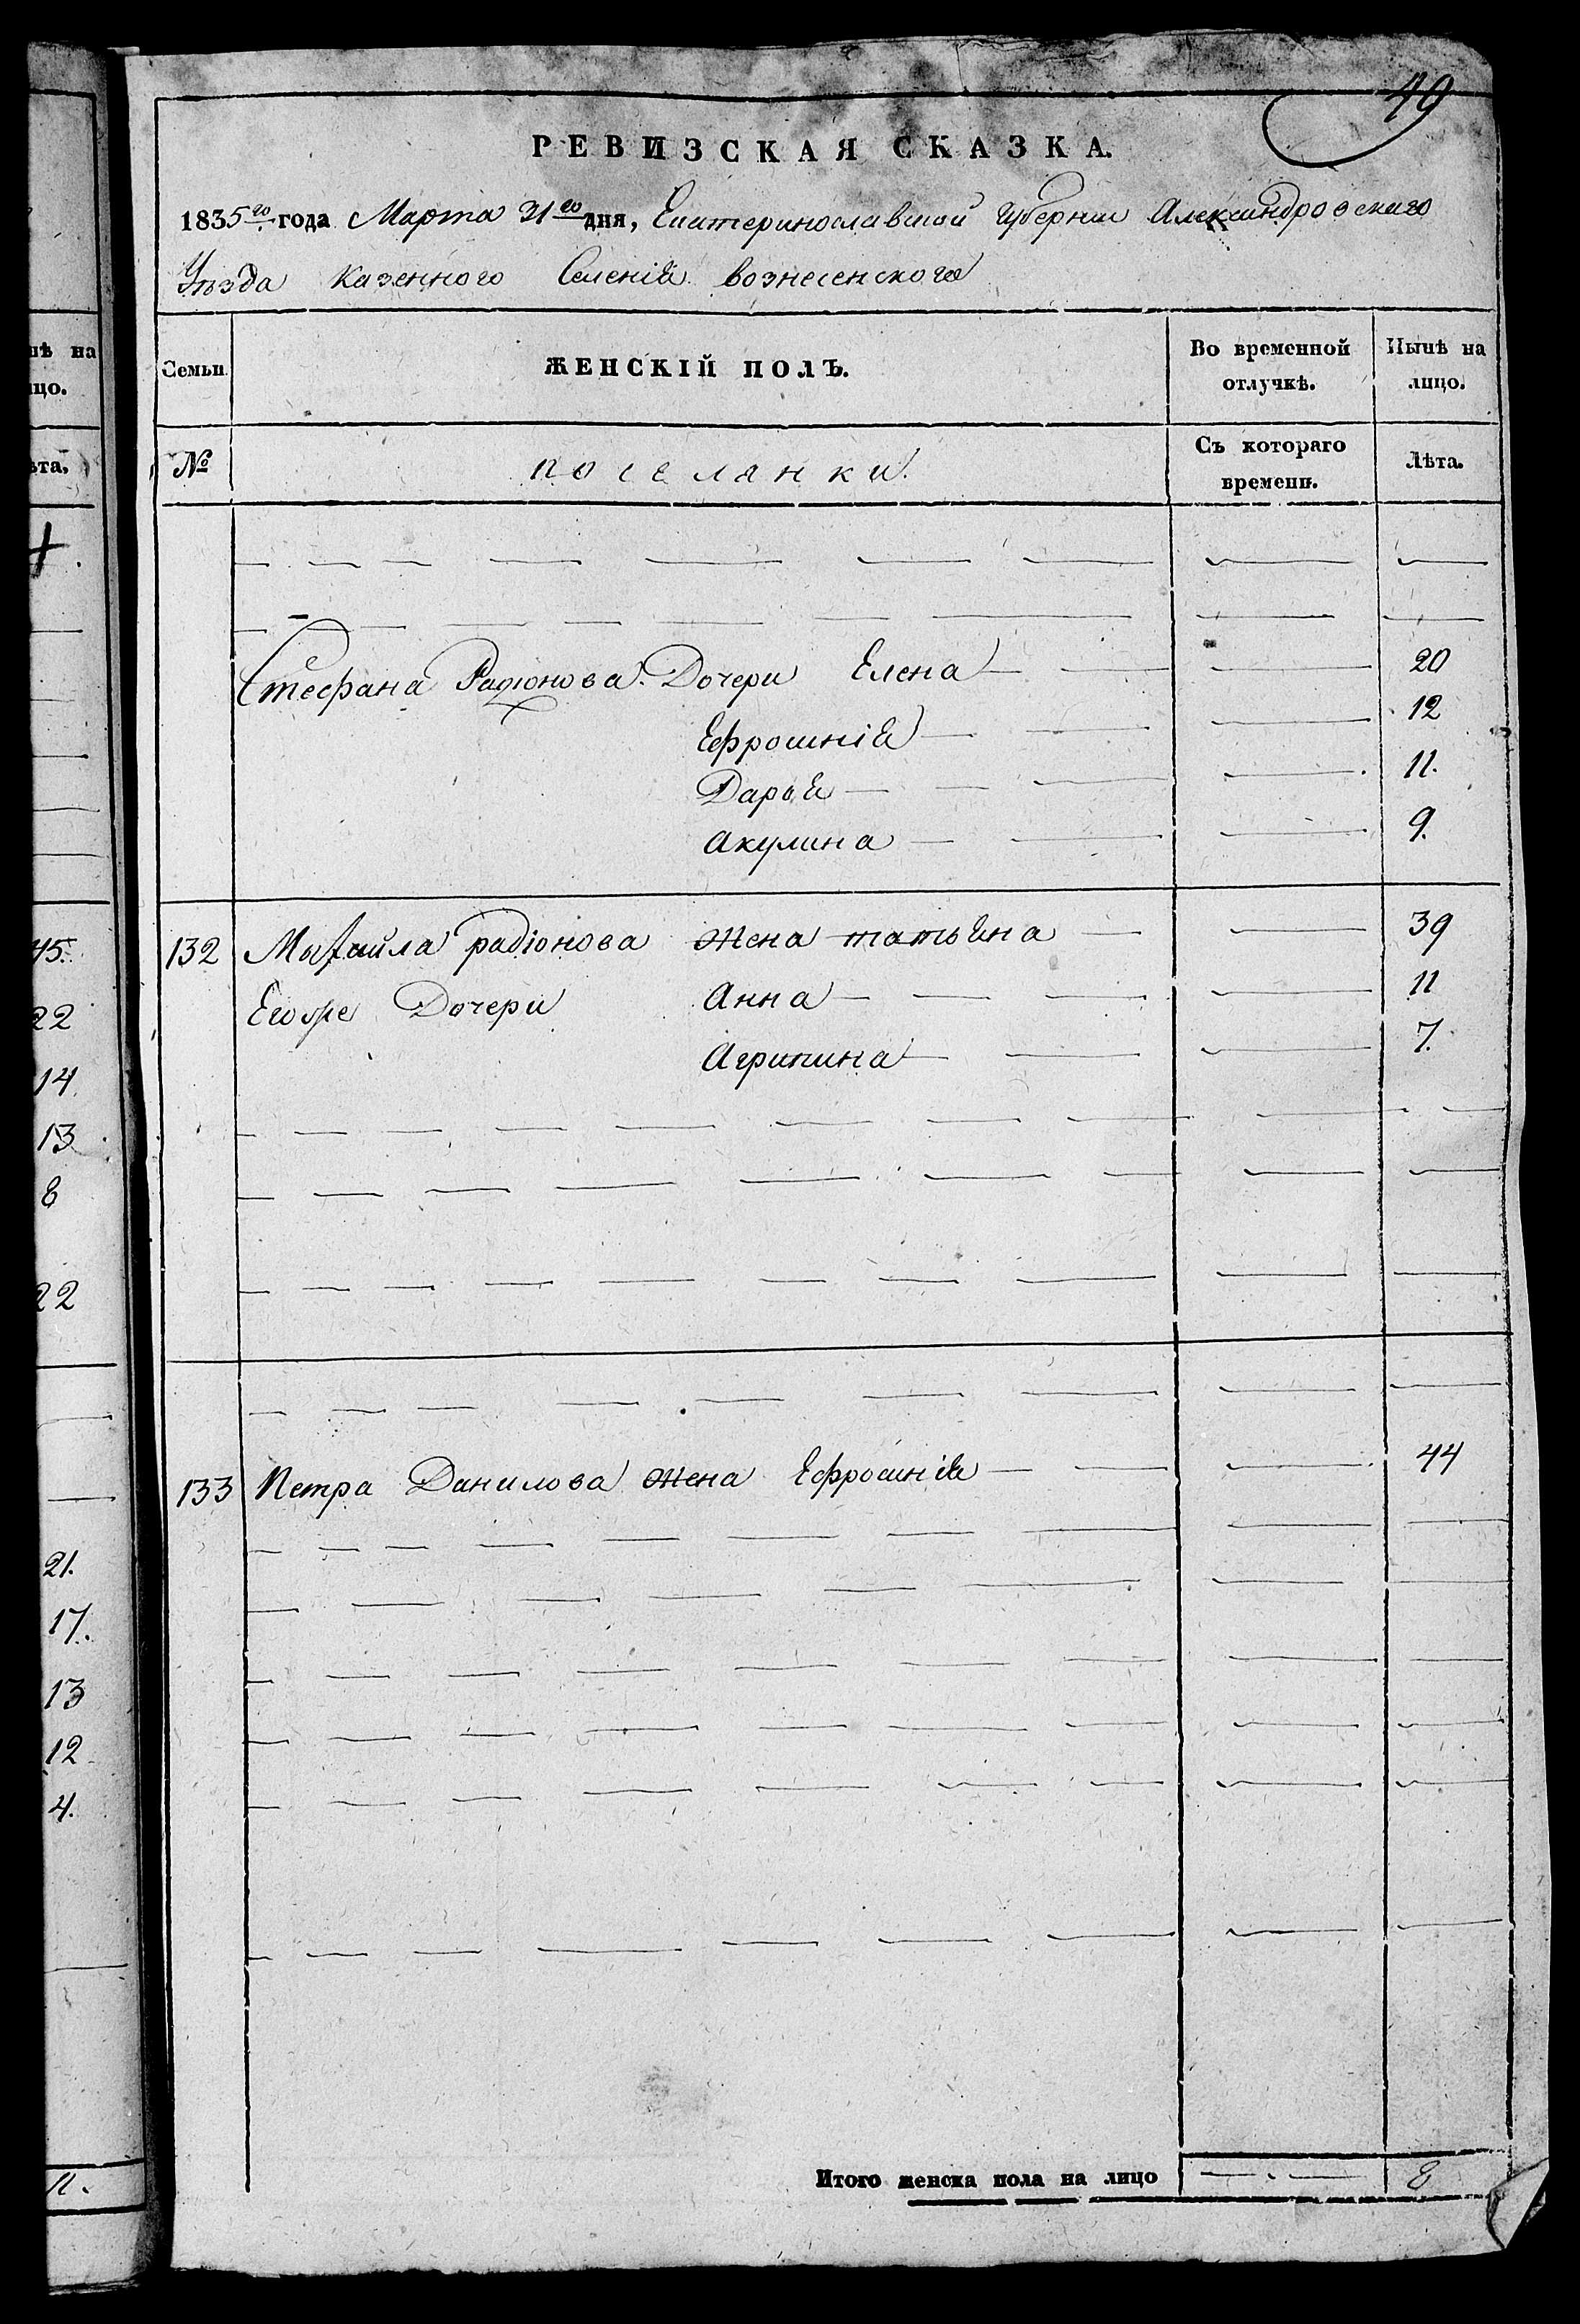 49
РЕВИЗСКАЯ СКАЗКА.
1835го года Марта 31го дня, Екатеринославской губернии Александровского
Уѣзда казенного Селенія вознесенского
Семьи ЖЕНСКІЙ ПОЛЪ. Во временной отлучкѣ. Нынѣ на лицо.
№ поселянки. Съ котораго времени. Лѣта.
Стефана Радіонова Дочери Елена 20
Ефросинія 12
Дарья 11.
Акулина 9.
132 Михайла радіонова жена татьяна 39
Егоже Дочери Анна 11
Агрипина 7.
133 Петра Данилова жена Ефросинія 44
Итого женска пола на лицо 8
нѣ на
ицо.
ѣта,
45.
22
14.
13
8
22
21.
17.
13
12
4.